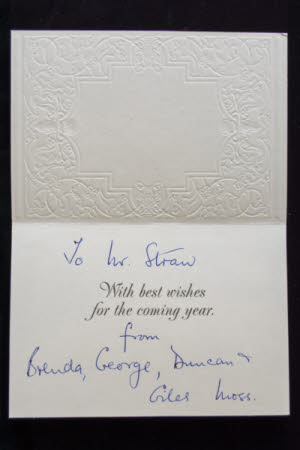 To Mr. Straw
With best wishes
for the coming year.
from
Brenda, George, Duncan &
Giles Moss.